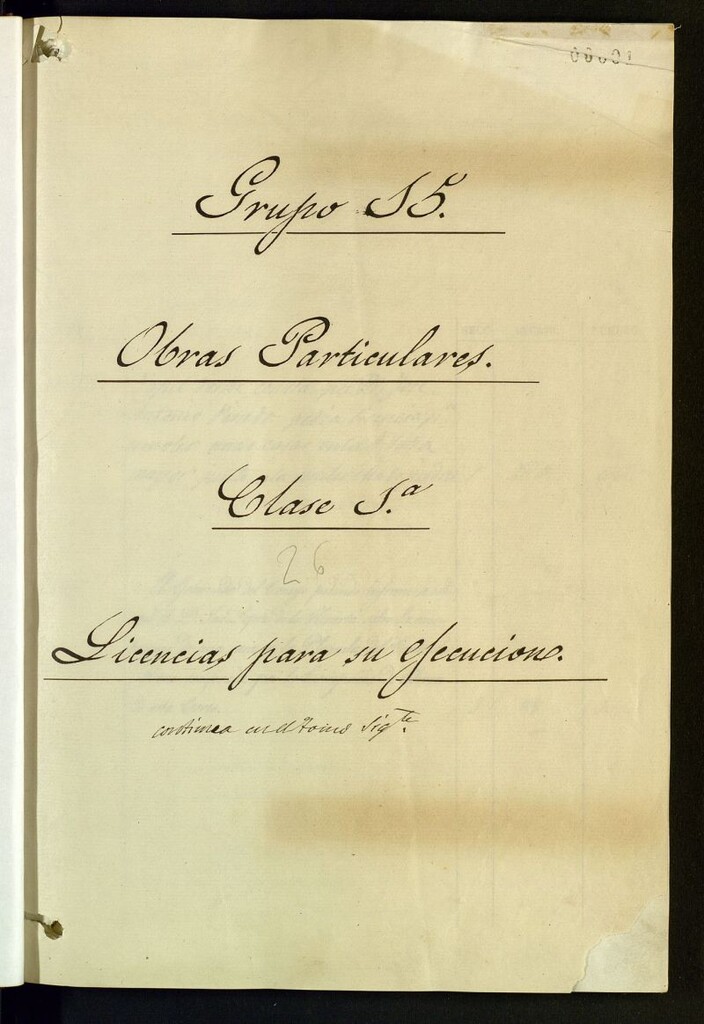 00001
Grupo 15.
Obras Particulares.
Clase 1.ª
26
Licencias para su ejecucion.
continua en el tomo sigte.